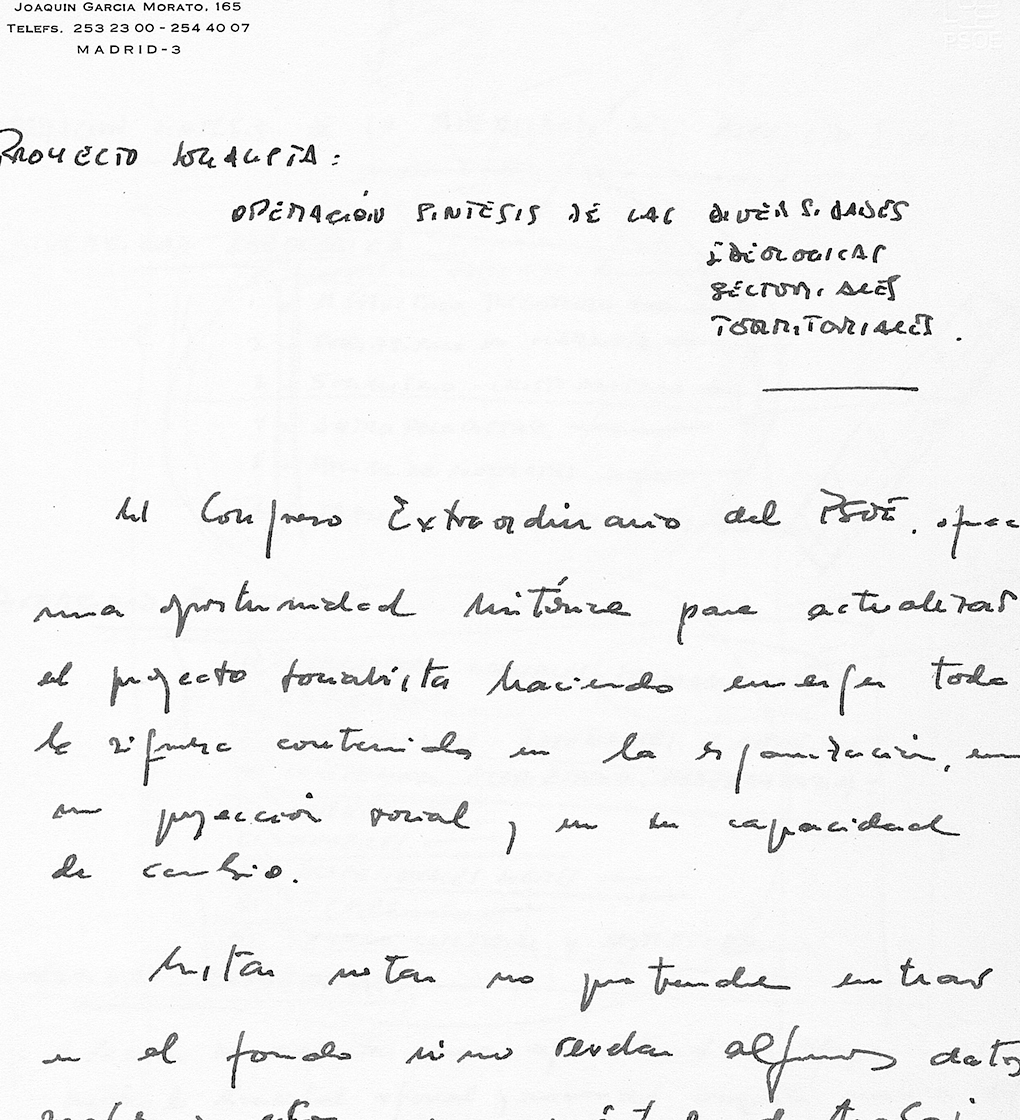 JOAQUIN GARCIA MORATO, 165
TELEFS. 253 23 00 - 254 40 07
MADRID-3
PSOE
PROYECTO SOCIALISTA:
OPERACIÓN SINTESIS DE LAS DIVERSIDADES
IDEOLOGICAS
SECTORIALES
TERRITORIALES.
El Congreso Extraordinario del PSOE, ofrece
una oportunidad histórica para actualizar
el proyecto socialista haciendo emerger toda
la riqueza contenida en la organización, en
su proyección social y en su capacidad
de cambio.
Estas notas no pretenden entrar
en el fondo sino revelar algunos datos